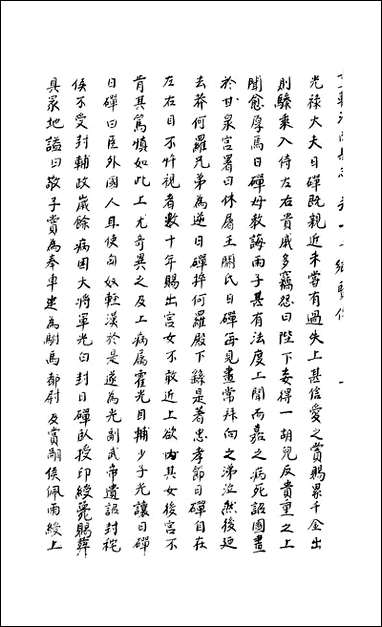 光祿大夫日磾既親近未嘗有過失上甚信愛之賞賜累千金出
則驂乘入侍左右貴戚多竊怨曰陛下妄得一胡兒反貴重之上
聞愈厚焉日磾母教誨兩子甚有法度上聞而嘉之病死詔圖畫
於甘泉宮署曰休屠王閼氏日磾每見畫常拜向之涕泣然後迺
去莽何羅兄弟為逆日磾捽何羅殿下繇是著忠孝節日磾自在
左右目不忤視者數十年賜出宮女不敢近上欲內其女後宮不
肯其篤慎如此上尤奇異之及上病属霍光目輔少子光讓日磾
日磾曰臣外國人且使匈奴輕漢於是遂為光副武帝遺詔封秺
侯不受封輔政歲餘病困大將軍光白封日磾臥授印綬薨賜葬
具冢地謚曰敬子賞為奉車建為駙馬都尉及賞嗣侯佩兩綬上